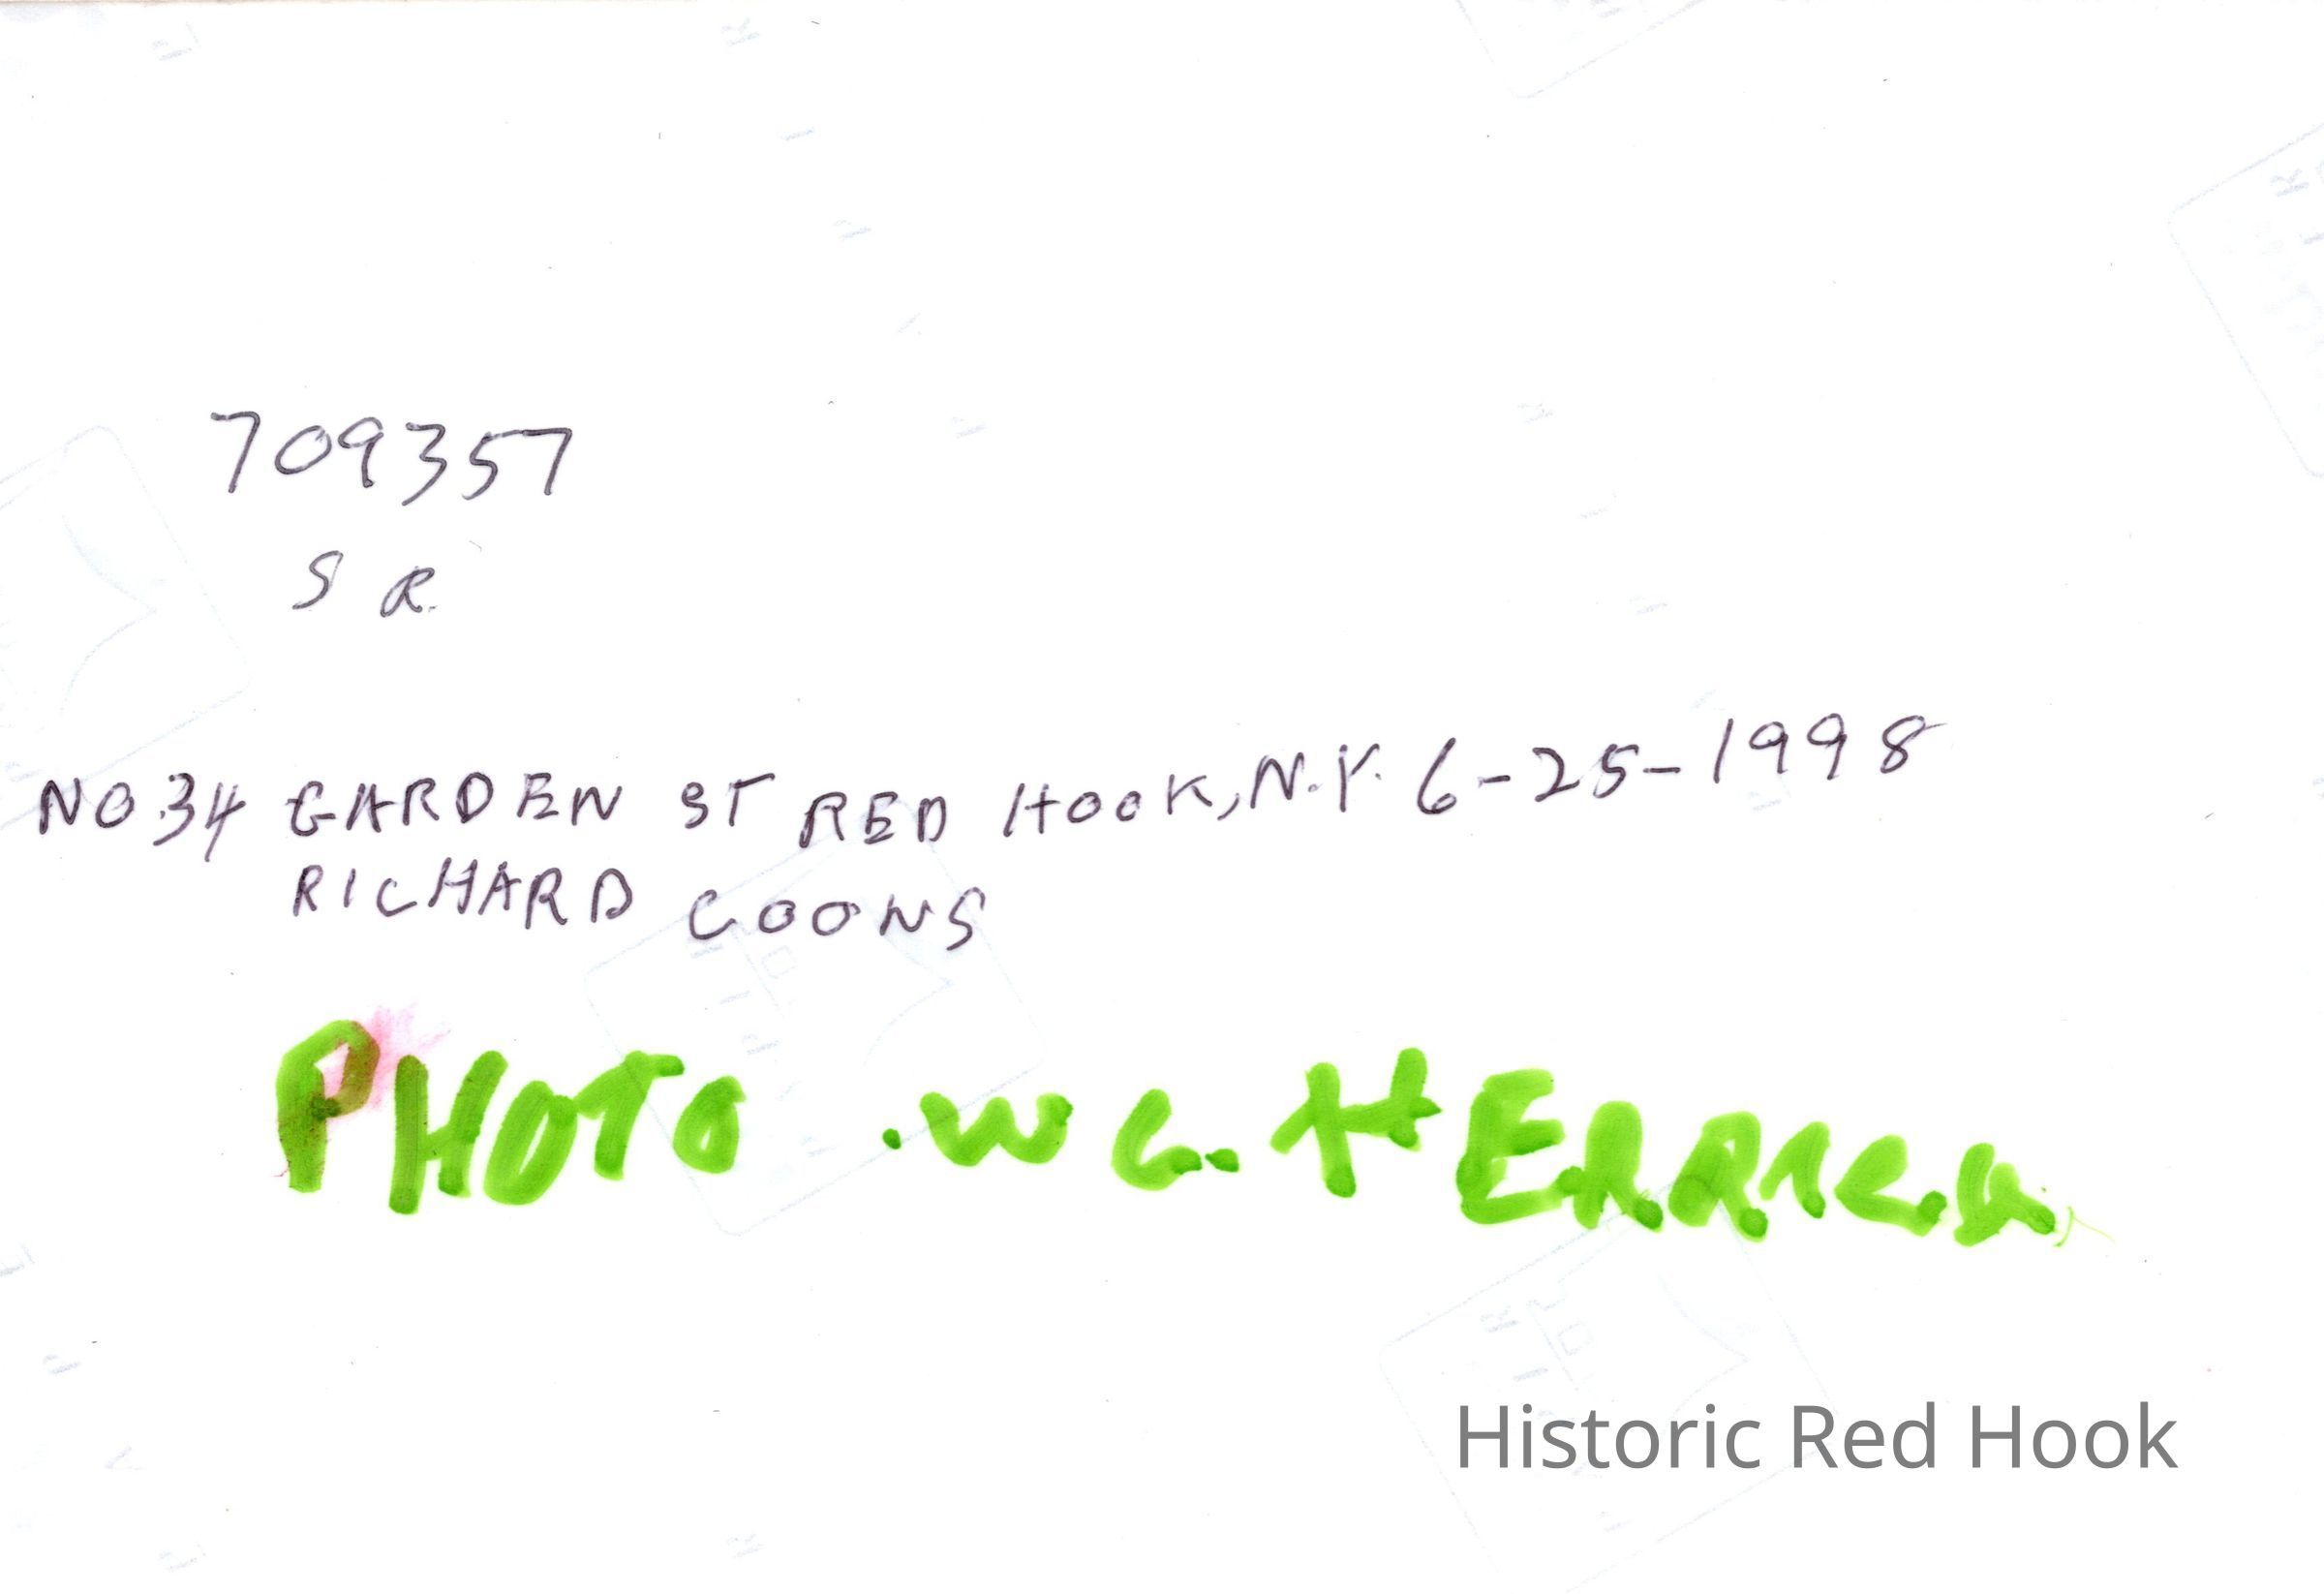 709357
S R.
NO.34 GARDEN ST RED HOOK, N.Y. 6-25-1998
RICHARD COONS
PHOTO . W C. HERRICK.
Historic Red Hook